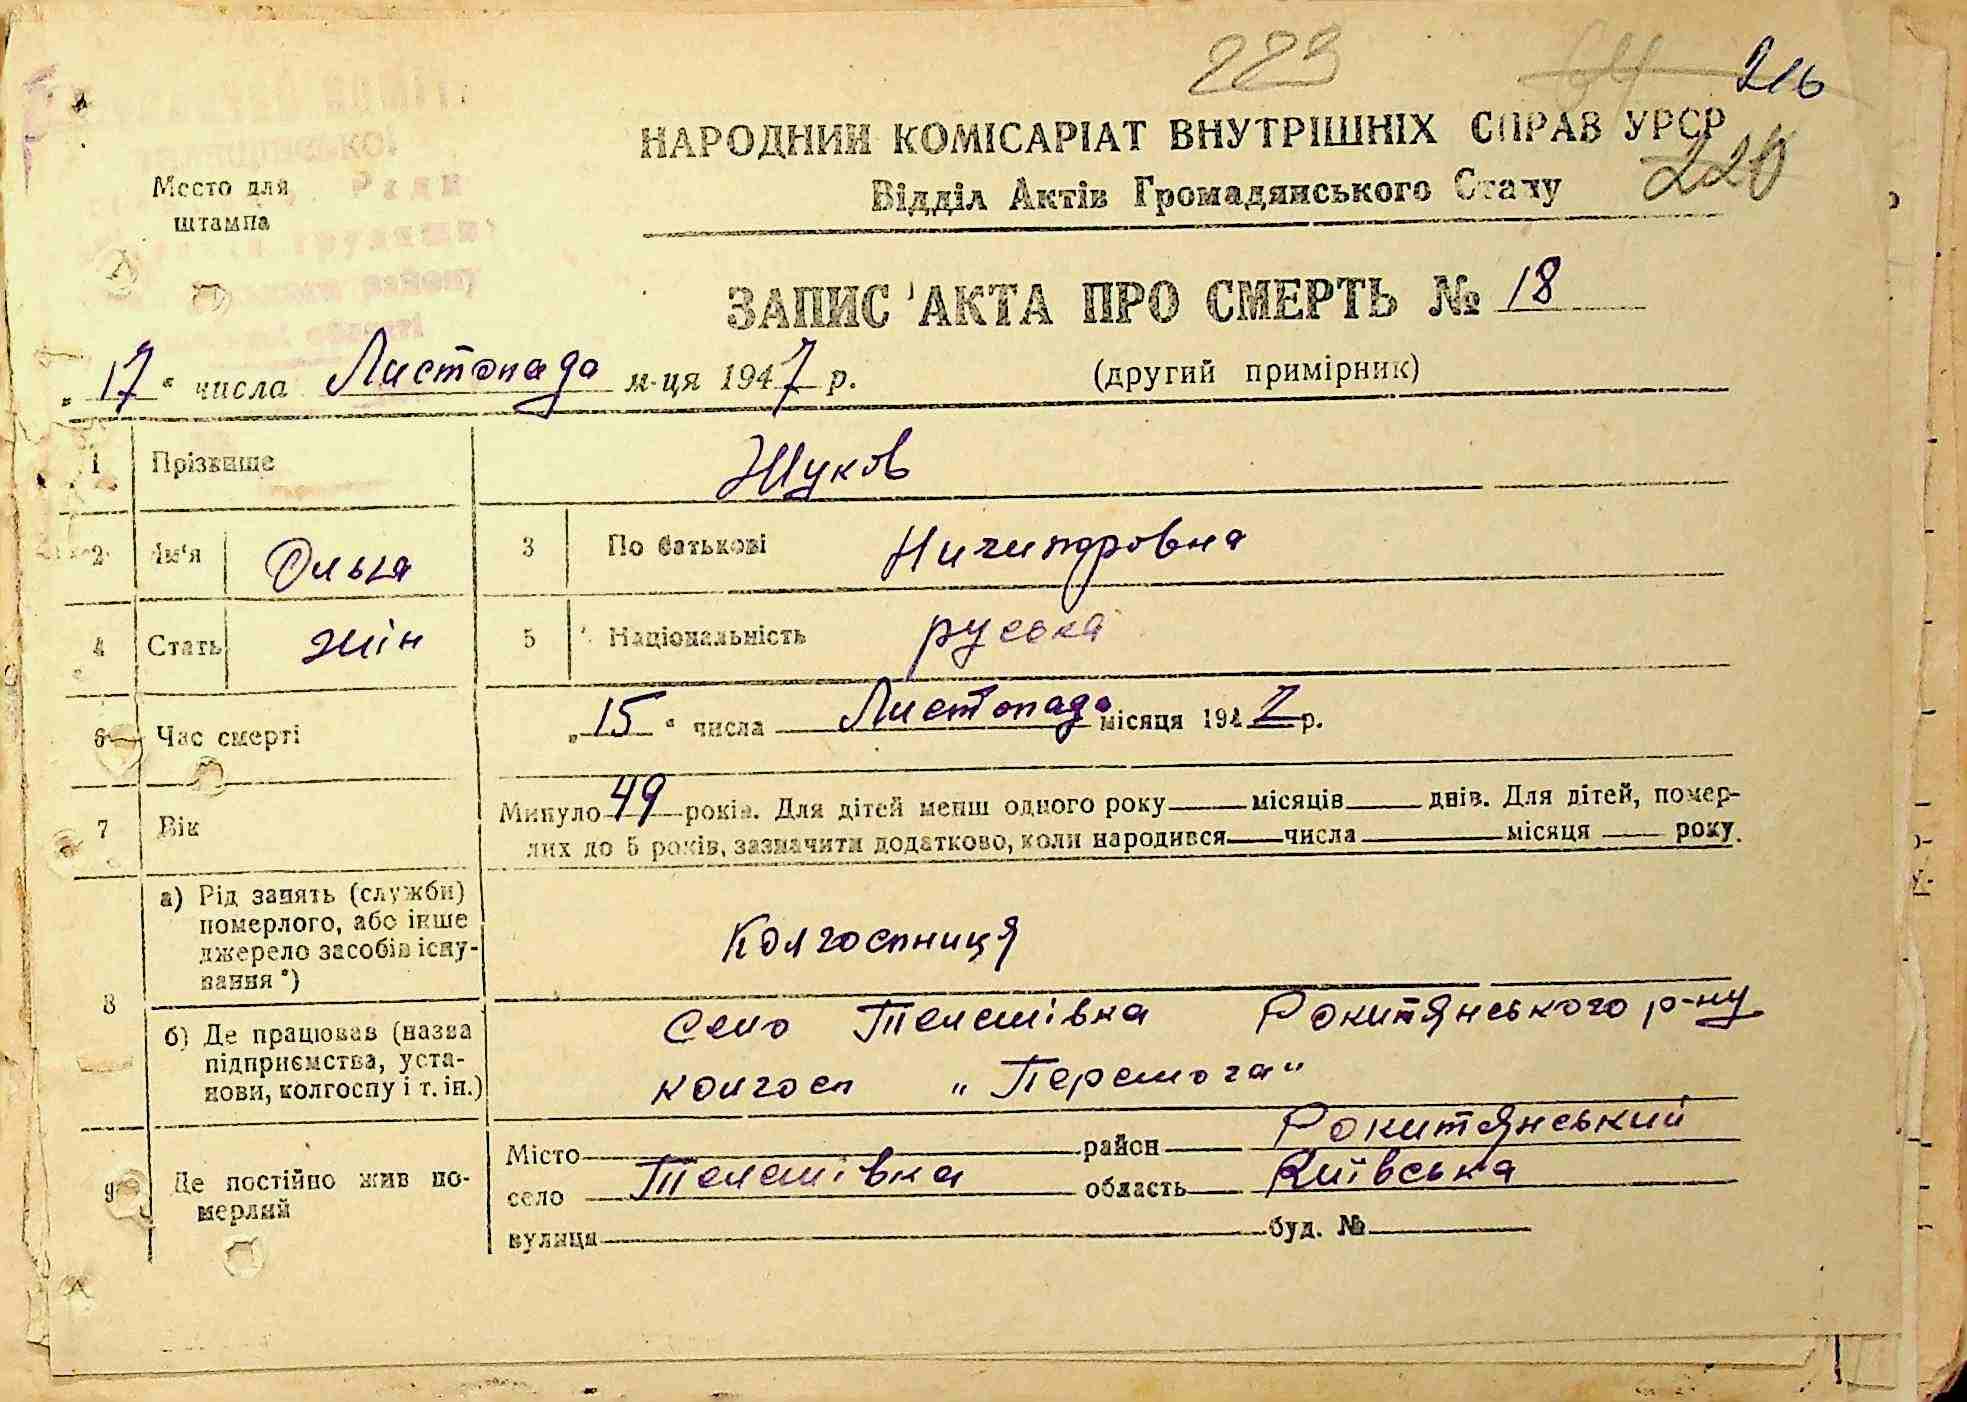 223 64 216
НАРОДНИЙ КОМІСАРІАТ ВНУТРІШНІХ СПРАВ УРСР
220
Відділ Актів Громадянського Стану
Место для
штампа
ЗАПИС АКТА ПРО СМЕРТЬ № 18
„17“ числа Листопада м-ця 1947 р. (другий примірник)
1 Прізвище Жуков
2 Ім'я Ольга 3 По батькові Ничипоровна
4 Стать жін 5 Національність руська
6 Час смерті „15“ числа Листопада місяця 1947 р.
7 Вік Минуло 49 років. Для дітей менш одного року місяців днів. Для дітей, помер-
лих до 5 років, зазначити додатково, коли народився числа місяця року.
8 а) Рід занять (служби)
померлого, або інше
джерело засобів існу-
вання *) Колгоспниця
б) Де працював (назва
підприємства, уста-
нови, колгоспу і т. ін.)
Село Телешівка Рокитянського р-ну
колгосп „Перемога“
9 Де постійно жив по-
мерлий
Місто район Рокитянський
село Телешівка область Київська
вулиця буд. №